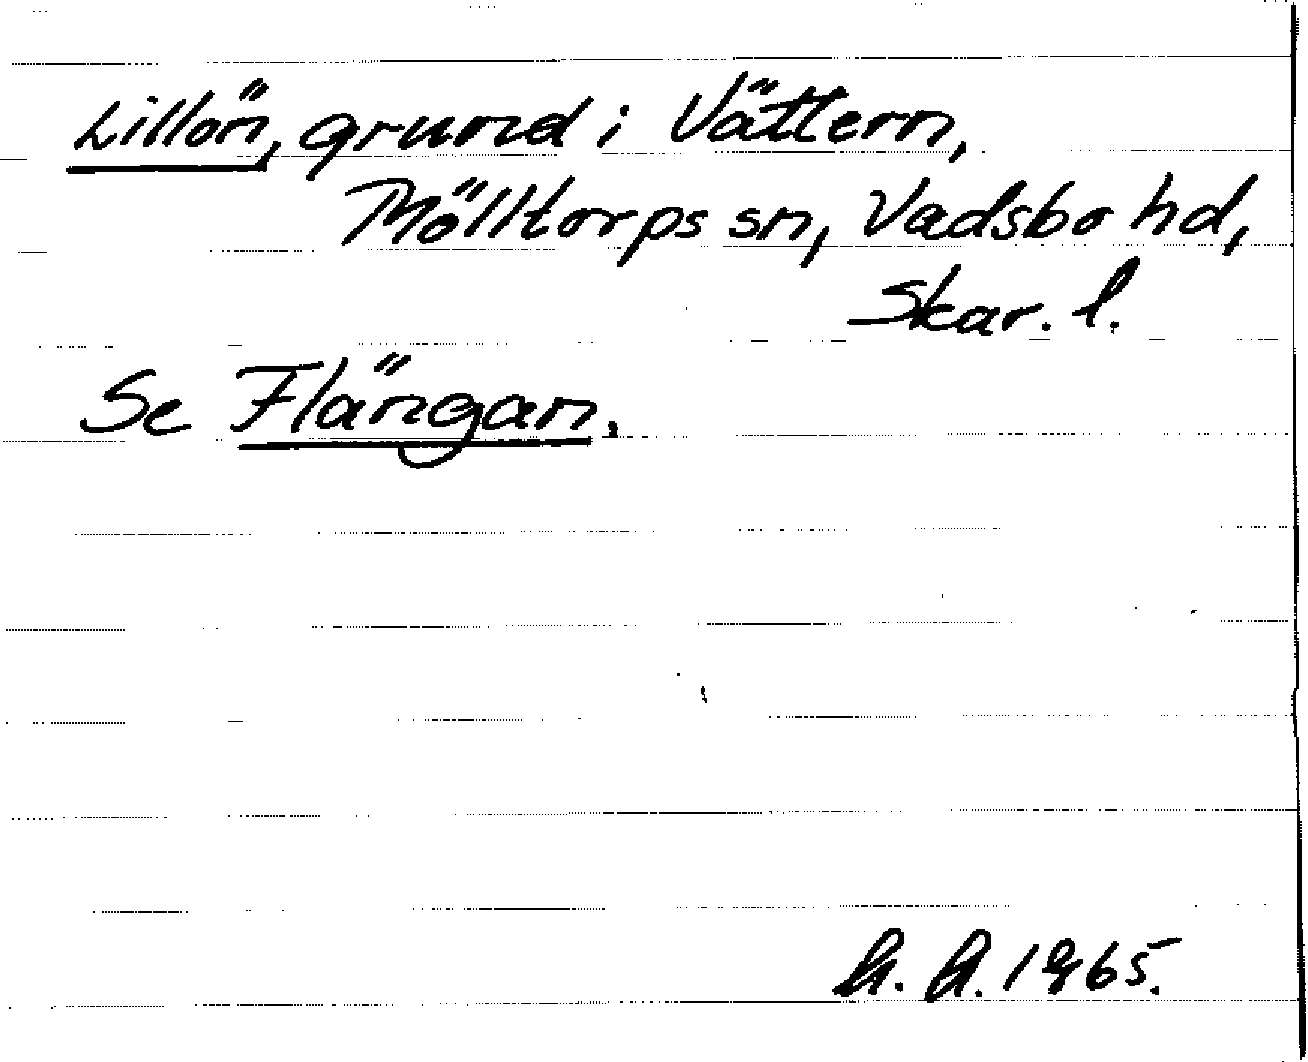 Lillön, grund i Vättern,
Mölltorps sn, Vadsbo hd,
Skar. l.
Se Flängan.
1965.